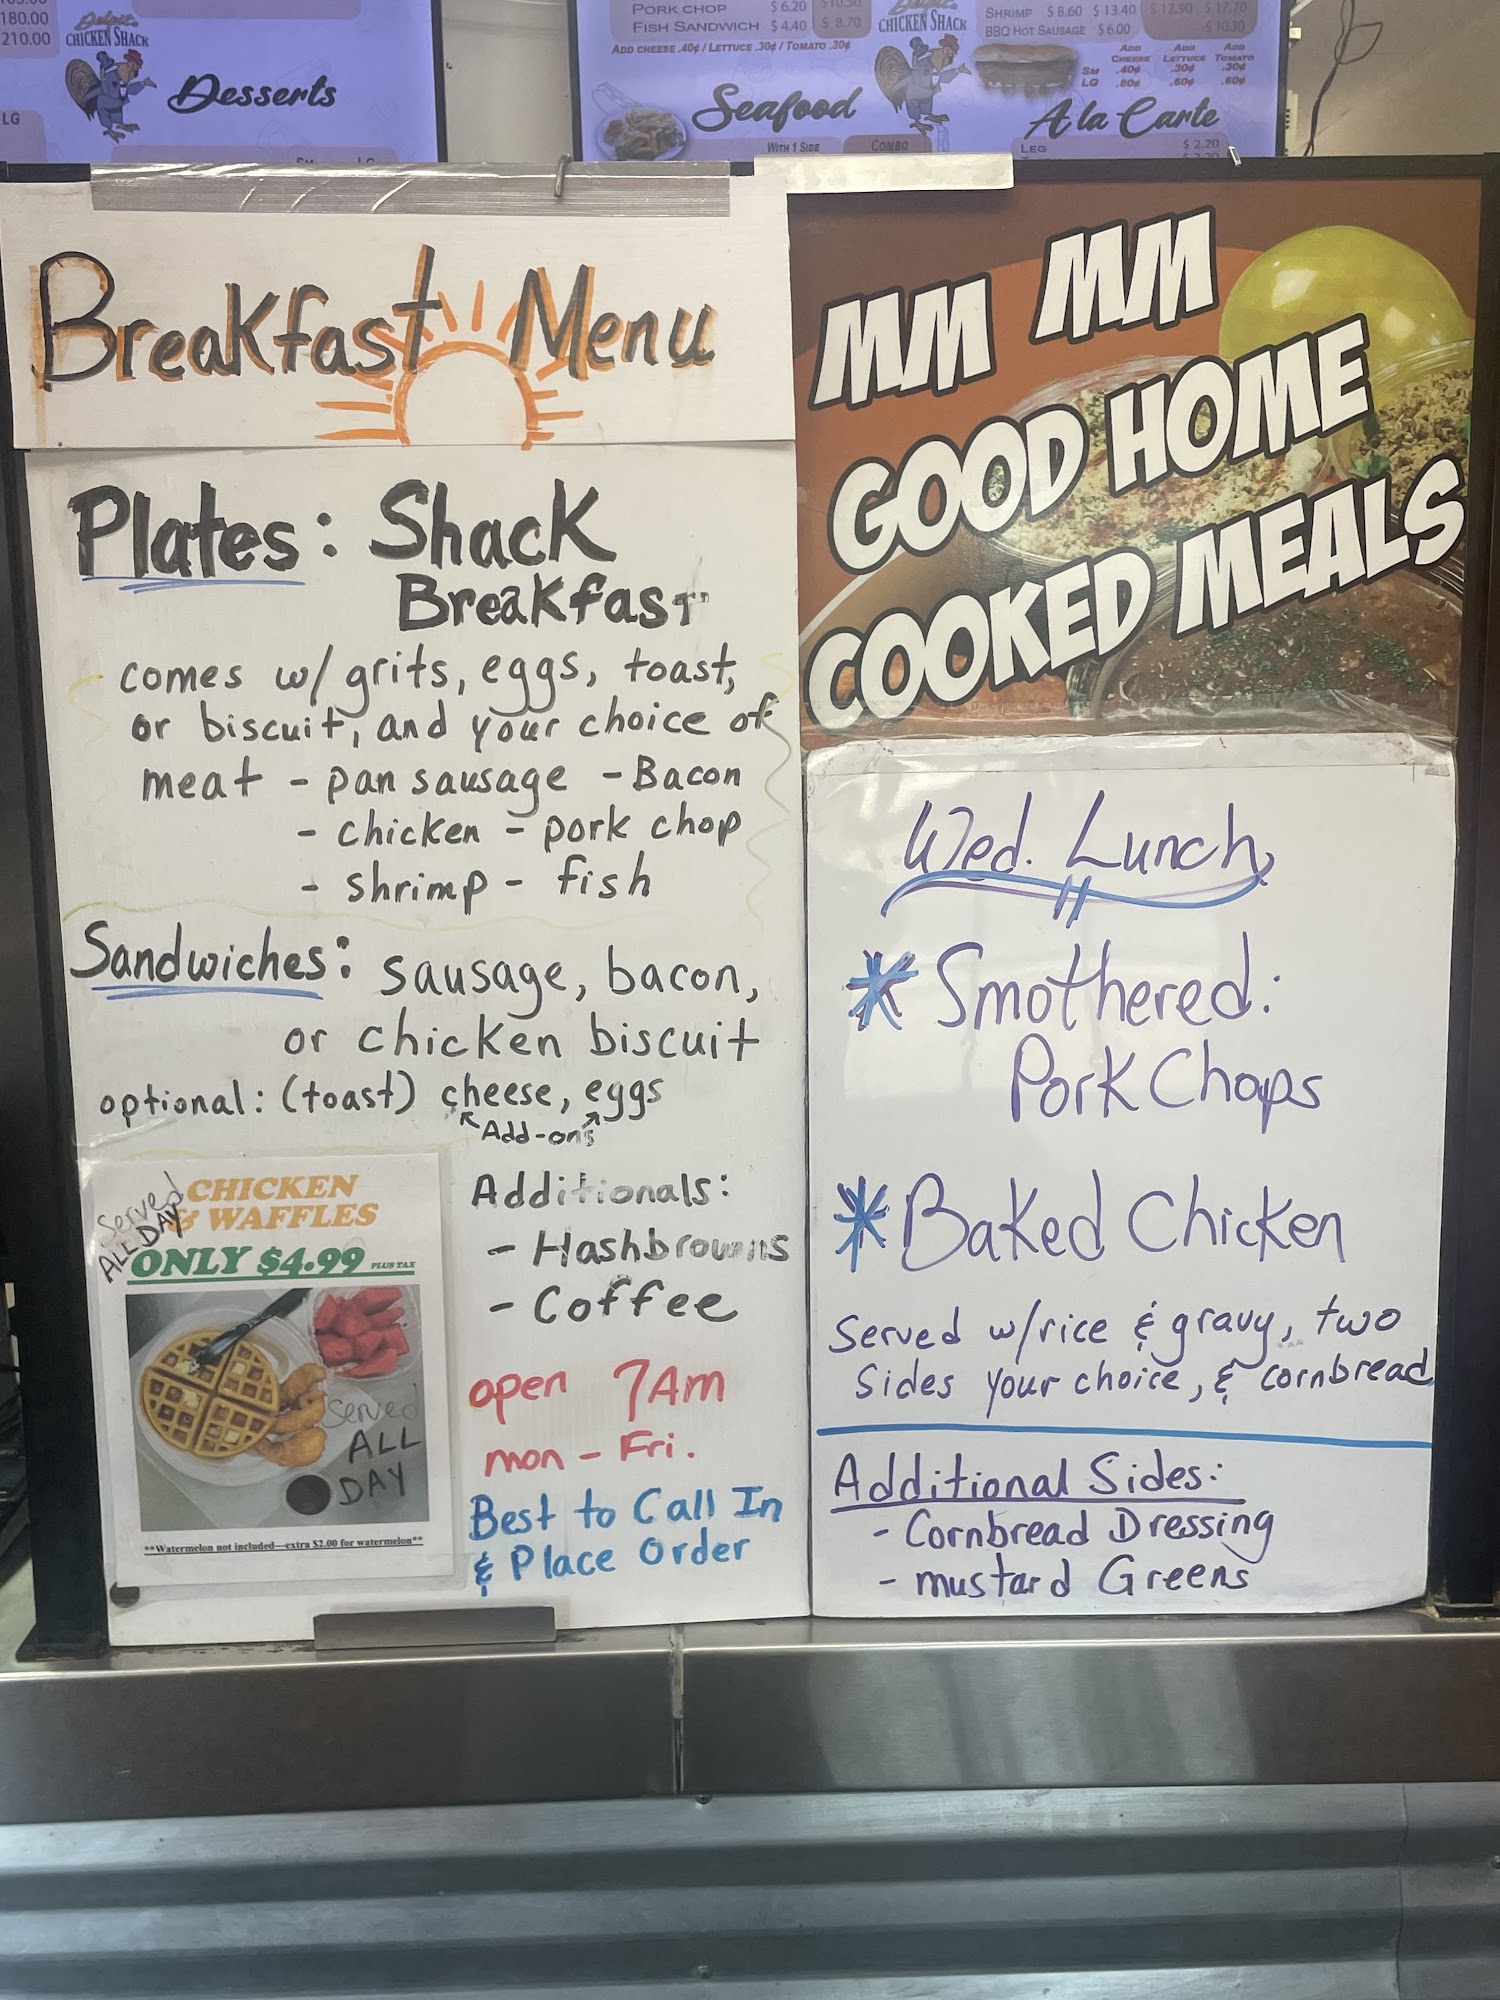 180.00
210.00
CHICKEN SHACK
Desserts
LG
PORK CHOP $ 6.20 $10.50
FISH SANDWICH $ 4.40 $ 8.70
ADD CHEESE .40¢ / LETTUCE .30¢ / TOMATO .30¢
Seafood
WITH 1 SIDE COMBO
CHICKEN SHACK
SHRIMP $ 8.60 $ 13.40 $ 12.90 $ 17.70
BBQ HOT SAUSAGE $ 6.00 $ 10.30
ADD CHEESE ADD LETTUCE ADD TOMATO
SM .40¢ .30¢ .30¢
LG .80¢ .60¢ .60¢
A la Carte
LEG $ 2.20
Breakfast Menu
Plates: Shack
Breakfast
comes w/ grits, eggs, toast,
or biscuit, and your choice of
meat - pan sausage - Bacon
- chicken - pork chop
- shrimp - fish
Sandwiches: sausage, bacon,
or chicken biscuit
optional: (toast) cheese, eggs
Add-ons
Served
ALL DAY
CHICKEN
& WAFFLES
ONLY $4.99 PLUS TAX
Served
ALL
DAY
**Watermelon not included—extra $2.00 for watermelon**
Additionals:
- Hashbrowns
- Coffee
open 7Am
mon - Fri.
Best to Call In
& Place Order
MM MM
GOOD HOME
COOKED MEALS
Wed. Lunch
* Smothered:
Pork Chops
* Baked Chicken
Served w/rice & gravy, two
Sides your choice, & cornbread
Additional Sides:
- Cornbread Dressing
- mustard Greens